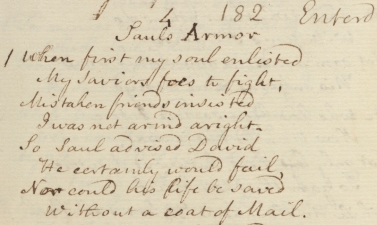 4 182 Enterd
Sauls Armor
1 When first my soul enlisted
My Saviors foes to fight,
Mistaken friends insisted
I was not armd aright.
So Saul advised David
He certainly would fail,
Nor could his life be saved
Without a coat of Mail.